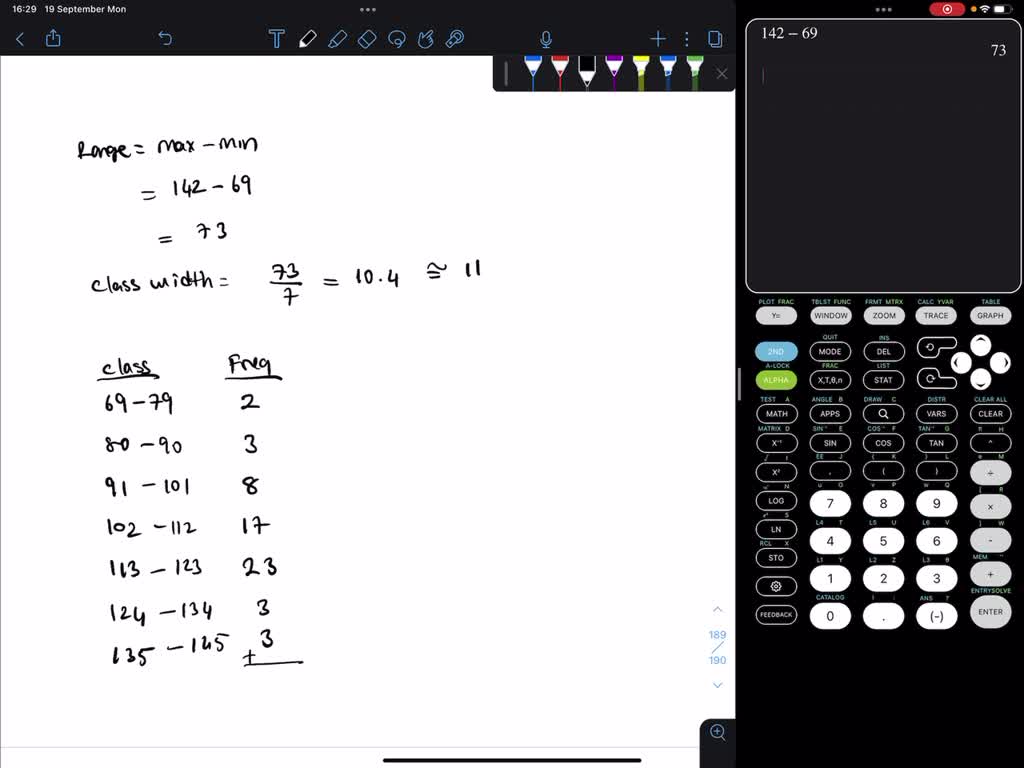 16:29 19 September Mon
142 − 69
73
Range = max - min
= 142 - 69
= 73
class width = 73/7 = 10.4 ≅ 11
class Freq
69 - 79 2
80 - 90 3
91 - 101 8
102 - 112 17
113 - 123 23
124 - 134 3
135 - 145 3
+
189
190
PLOT FRAC TBLST FUNC FRMT MTRX CALC YVAR TABLE
Y= WINDOW ZOOM TRACE GRAPH
QUIT INS
2ND MODE DEL
A-LOCK FRAC LIST
ALPHA X,T,θ,n STAT
TEST A ANGLE B DRAW C DISTR CLEAR ALL
MATH APPS VARS CLEAR
MATRIX D SIN⁻¹ E COS⁻¹ F TAN⁻¹ G π H
X⁻¹ SIN COS TAN ^
√ I EE J { K } L e M
X² , ( ) ÷
N u O v P w Q [ R
LOG 7 8 9 ×
S L4 T L5 U L6 V ] W
LN 4 5 6 -
RCL X L1 Y L2 Z L3 θ MEM "
STO 1 2 3 +
CATALOG i : ANS ? ENTRYSOLVE
FEEDBACK 0 . (-) ENTER